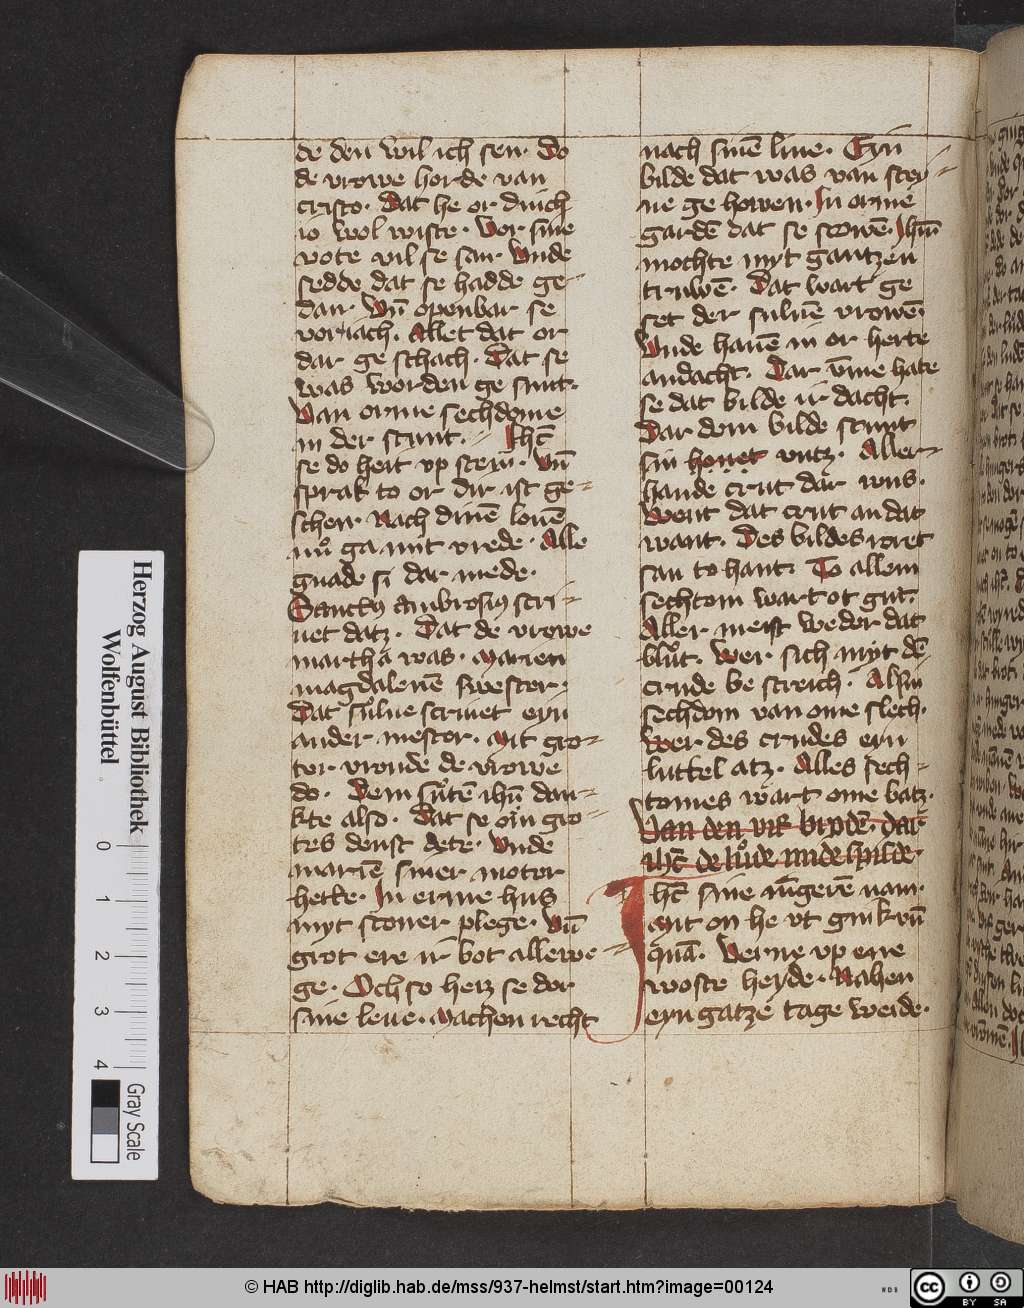 de den wil ich sen. Do
de vrowe horde van
cristo. Dat he or dinch
io wol wiste. Vor sine
vote vil se san. Vnde
sedde dat se hadde ge-
dan. Vn̄ openbar se
voriach. Allet dat or
dar ge schach. Dat se
was worden ge sunt.
Van orme sechdome
in der stunt. Ihc̄
se do heit vp stein. Vn̄
sprak to or dir ist ge-
schen. Nach dinē louē
nu ga mit vrede. Alle
gnade si dar mede.
Sanctus ambrosius scri-
uet datz. Dat de vrowe
martha was. Marien
magdalenē swester.
Dat sulue scriuet eyn
ander mester. Mit gro-
ter vroude de vrowe
do. Dem sutē ihū dan-
kte also. Dat se oin gro-
tes denst dete. Vnde
mariē siner moter
hette. In erme hus
myt sconer plege. Vn̄
grot ere ir bot allewe-
ge. Och so heiz se dor
sine leue. Machen recht
nach sinē liue. Eyn
bilde dat was van stey-
ne ge howen. In orme
gardē dat se scowē. Ihm̄
mochte myt gantzen
truwē. Dat wart ge
set der suluē vrowē.
Vnde hauē in or herte
andacht. Dar vm̄e hate
se dat bilde ir dacht.
Dar dem bilde stunt
sin houet vntz. Aller-
hande crut dar wus.
Went dat crut an dat
want. Des bildes roret
san to hant. To allem
sechtom wart ot gut.
Aller meist weder dat
blut. Wer sich myt dē
crude be streich. Alsin
sechdom van ome slech.
Wer des crudes eyn
luttel atz. Alles sech-
tomes wart ome batz.
Van den vif broden. dar
ihc̄ de lude mide spilde.
Ihc̄ sine iūgerē nam.
Mit on he vt gink vn̄
quā. Verne vp ene
woste heyde. Nahen
eyn gātze tage weide.
Herzog August Bibliothek
Wolfenbüttel
0 1 2 3 4
Gray Scale
© HAB http://diglib.hab.de/mss/937-helmst/start.htm?image=00124
WDB
cc BY SA